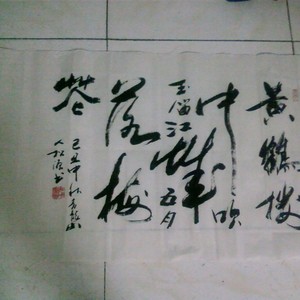 黄鹤楼
中吹
玉笛江城五月
落梅
花
己丑中秋